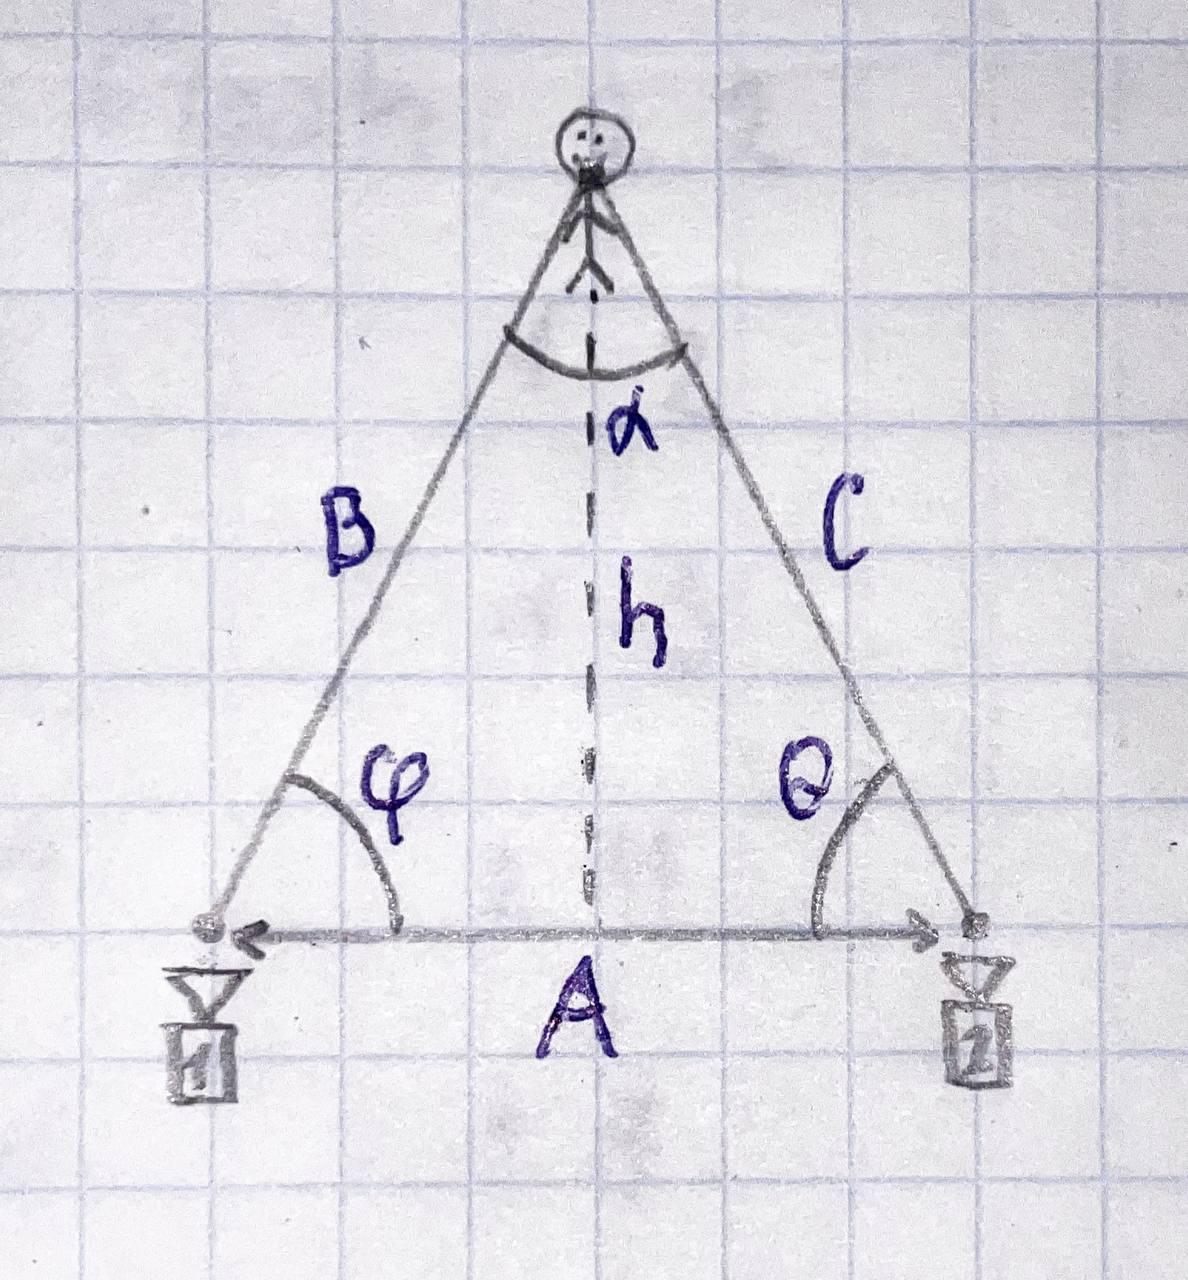 α
B C
h
φ θ
A
1 2